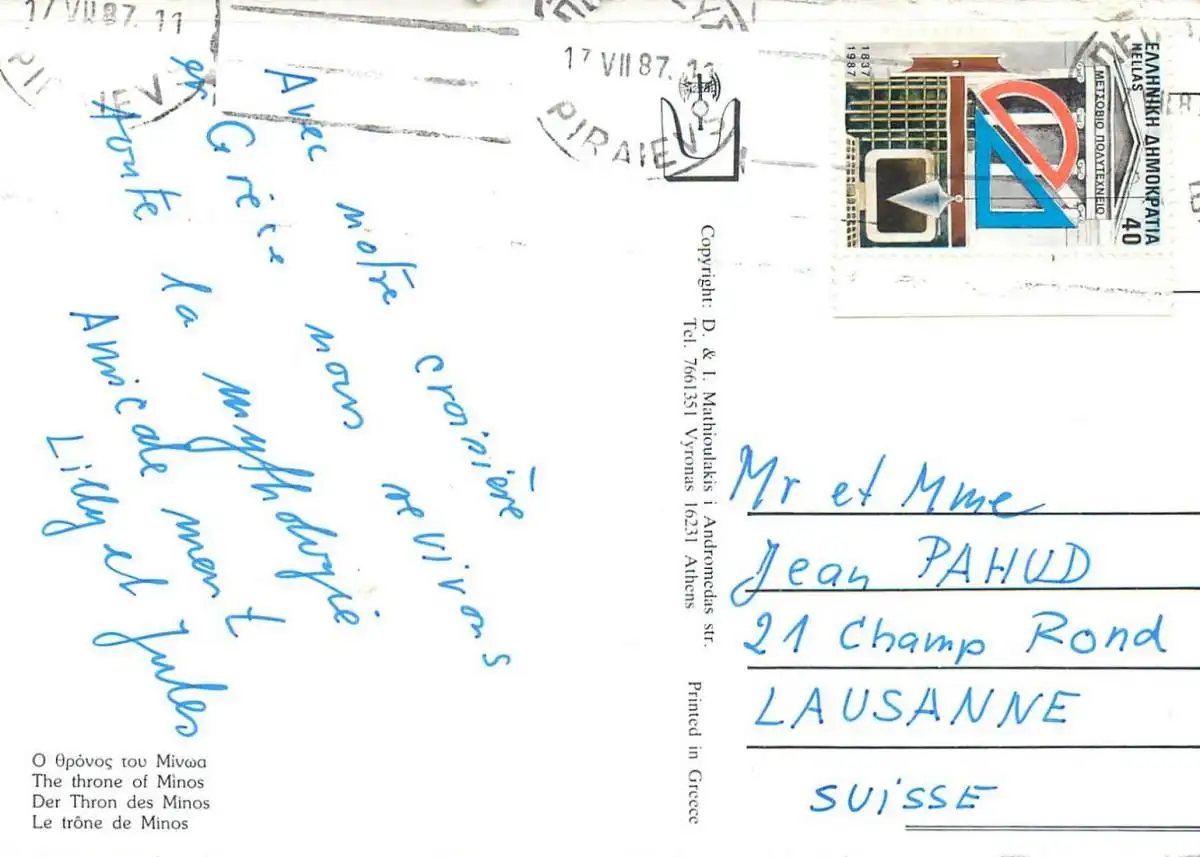 17 VII 87. 11
PIRAIEV
17 VII 87. 11
PIRAIEV
1837
1987
ΕΛΛΗΝΙΚΗ ΔΗΜΟΚΡΑΤΙΑ
HELLAS
ΜΕΤΣΟΒΙΟ ΠΟΛΥΤΕΧΝΕΙΟ
40
Avec notre croisière
en Grèce nous revivons
toute la mythologie
Amicalement
Lilly et Jules
Ο θρόνος του Μίνωα
The throne of Minos
Der Thron des Minos
Le trône de Minos
Copyright: D. & I. Mathioulakis i Andromedas str.
Tel. 7661351 Vyronas 16231 Athens
Printed in Greece
Mr et Mme
Jean PAHUD
21 Champ Rond
LAUSANNE
SUISSE